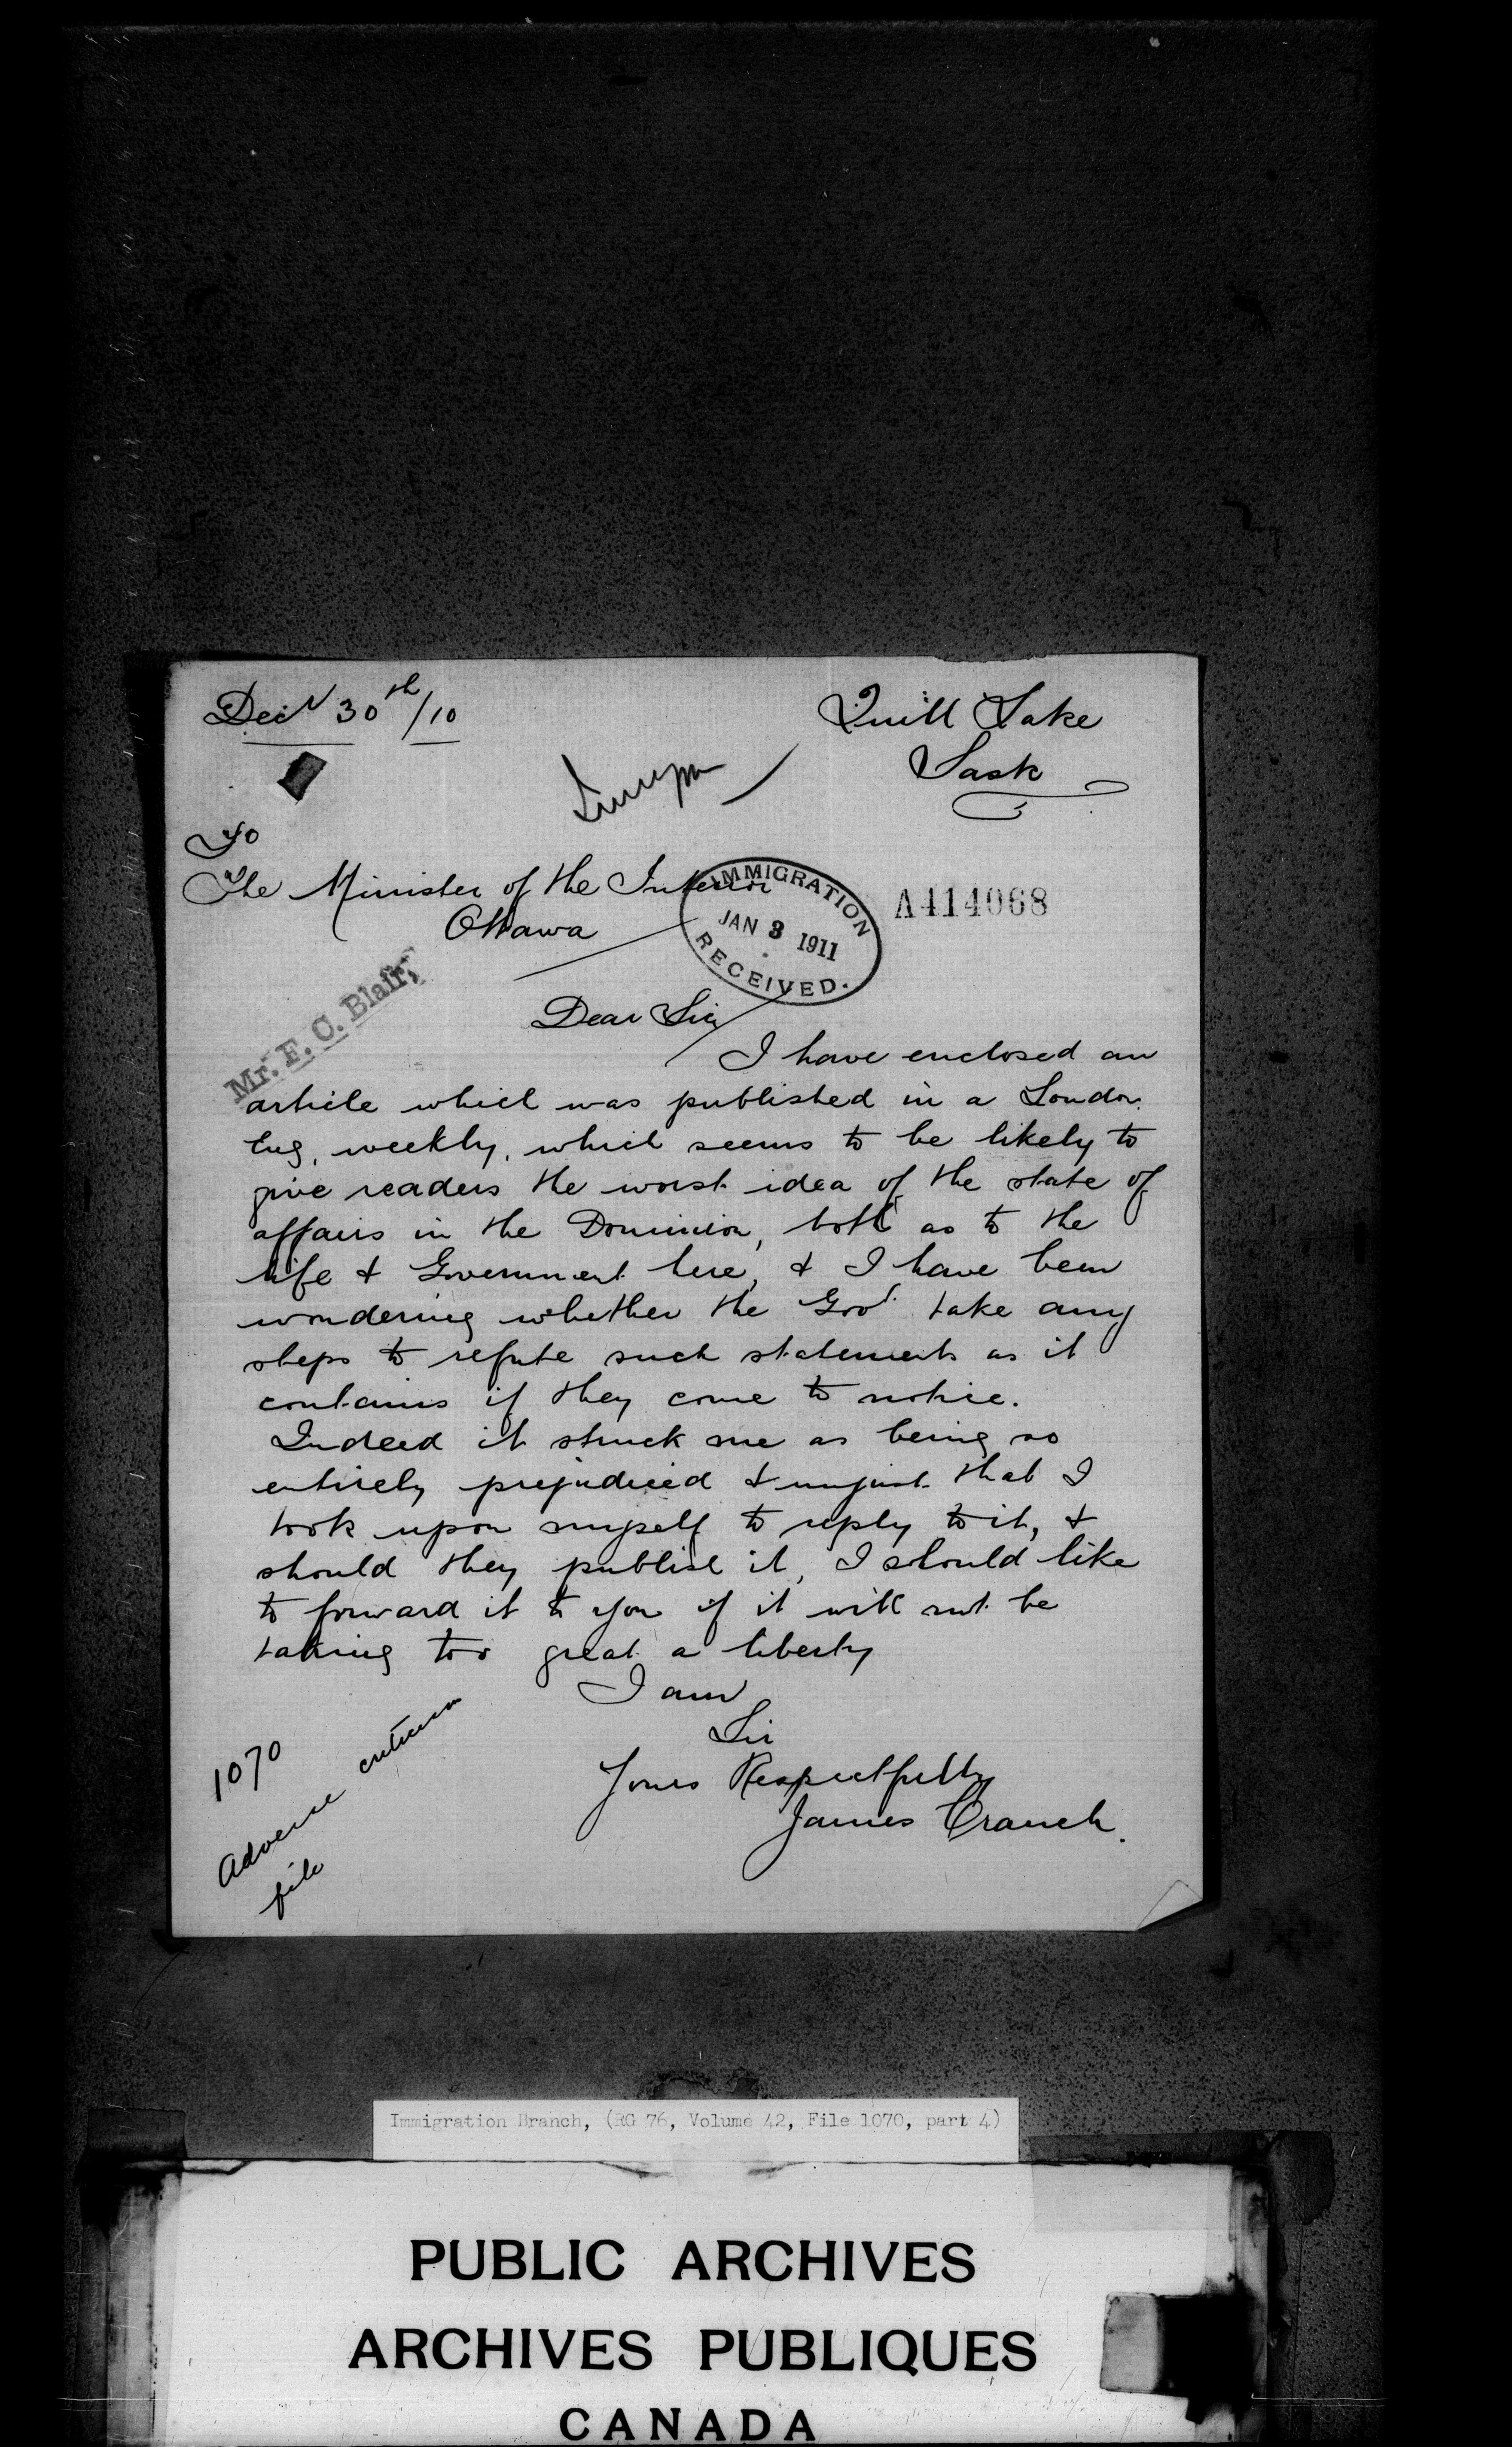 Decr 30th/10
Quill Lake
Sask
To
The Minister of the Interior
Ottawa
IMMIGRATION
JAN 3 1911
RECEIVED.
A414068
Mr. F. C. Blair,
Dear Sir,
I have enclosed an
article which was published in a London
Eng, weekly, which seems to be likely to
give readers the worst idea of the state of
affairs in the Dominion, both as to the
life & Government here, & I have been
wondering whether the Govt. take any
steps to refute such statements as it
contains if they come to notice.
Indeed it struck me as being so
entirely prejudiced & unjust that I
took upon myself to reply to it, &
should they publish it, I should like
to forward it to you if it will not be
taking too great a liberty
I am
Sir
Yours Respectfully
James Cranch.
1070
Adverse criticism
file
Immigration Branch, (RG 76, Volume 42, File 1070, part 4)
PUBLIC ARCHIVES
ARCHIVES PUBLIQUES
CANADA